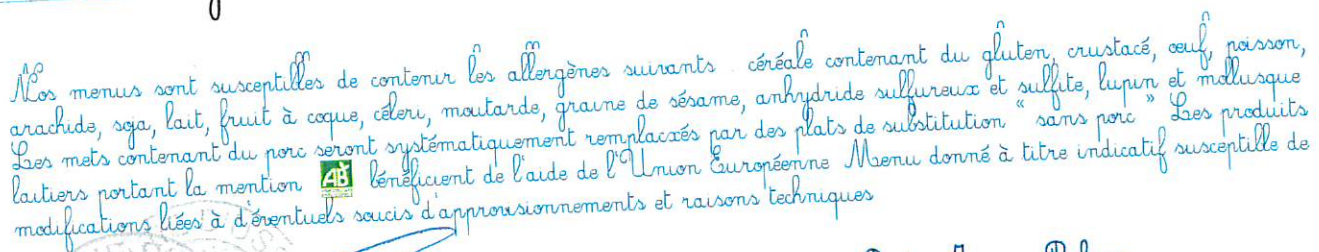 Nos menus sont susceptibles de contenir les allergènes suivants céréale contenant du gluten, crustacé, œuf, poisson,
arachide, soja, lait, fruit à coque, céleri, moutarde, graine de sésame, anhydride sulfureux et sulfite, lupin et mollusque
Les mets contenant du porc seront systématiquement remplacés par des plats de substitution “ sans porc ” Les produits
laitiers portant la mention AB bénéficient de l'aide de l'Union Européenne Menu donné à titre indicatif susceptible de
modifications liées à d'éventuels soucis d'approvisionnements et raisons techniques